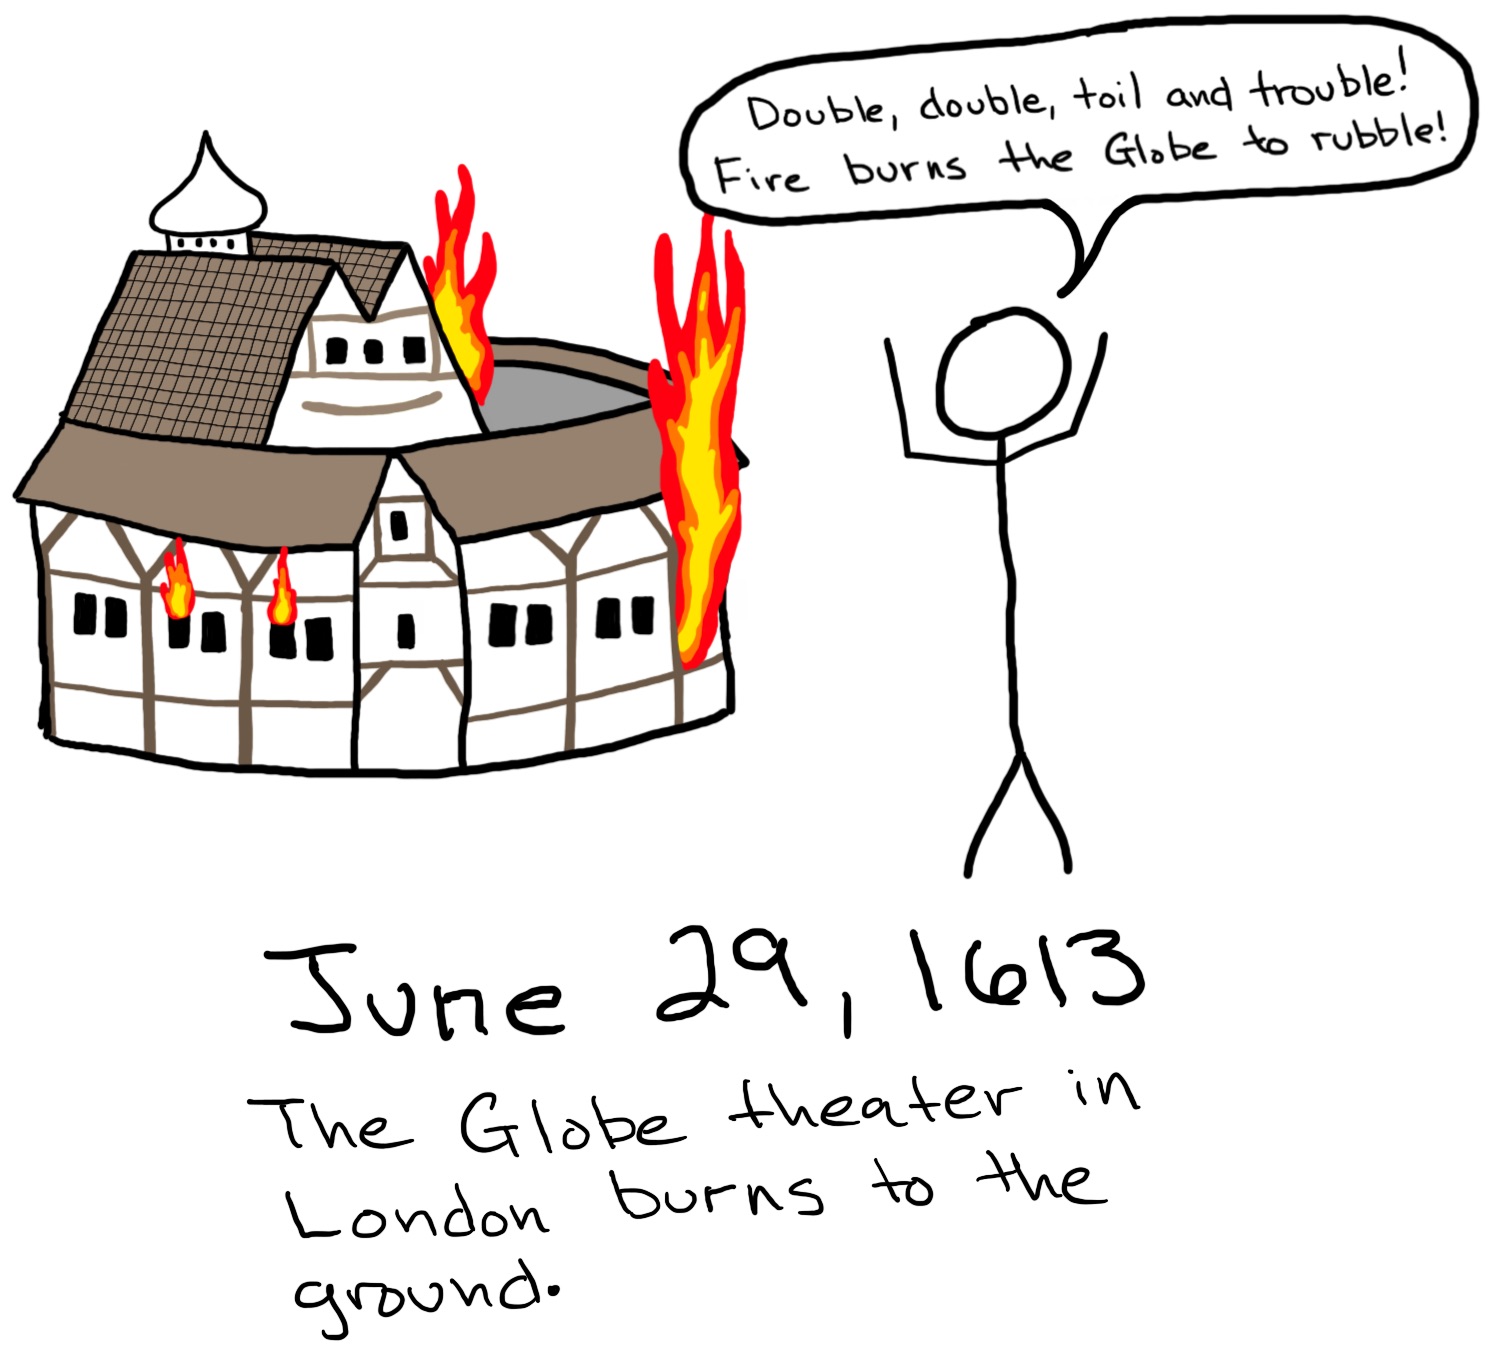 Double, double, toil and trouble!
Fire burns the Globe to rubble!
June 29, 1613
The Globe theater in
London burns to the
ground.